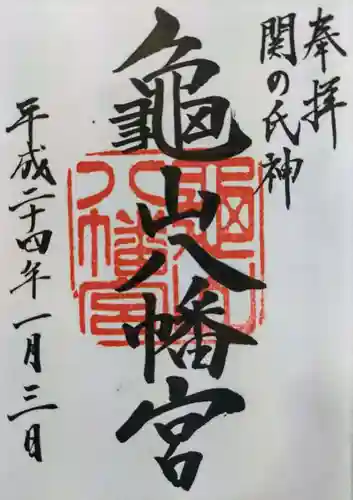 奉拝
関の氏神
亀山八幡宮
平成二十四年一月三日
亀山
八幡宮